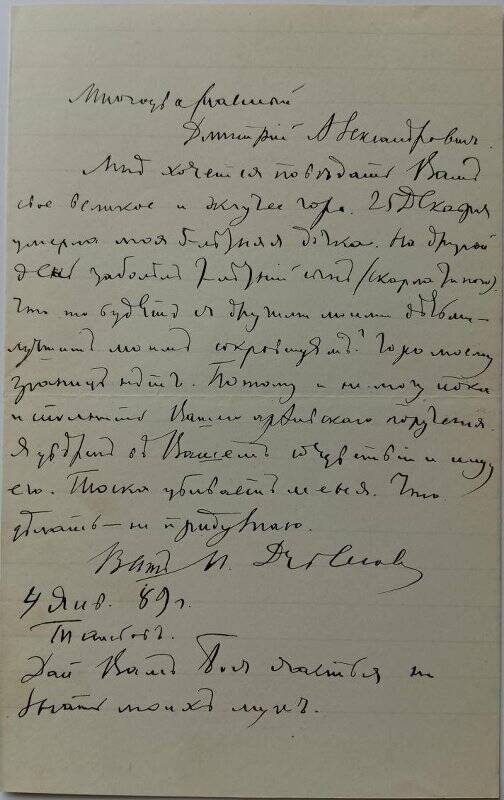 Многоуважаемый
Дмитрий Александрович.
Мнѣ хочется повѣдать Вамъ
свое великое и жгучее горе. 25 Декабря
умерла моя дочка. На другой
день заболѣлъ сынъ (скарлатиною).
Что то будетъ съ другими моими
моимъ сокровищемъ? Горю моему
границъ нѣтъ. Потому и не могу пока
исполнить Вашего архивскаго порученія.
Я увѣренъ въ Вашемъ сочувствіи и ищу
его. Тоска убиваетъ меня. Что
дѣлать – не придумаю.
Вашъ И. Дубасовъ
4 Янв. 89 г.
Тамбовъ.
Дай Вамъ Богъ счастья не
знать моихъ мукъ.